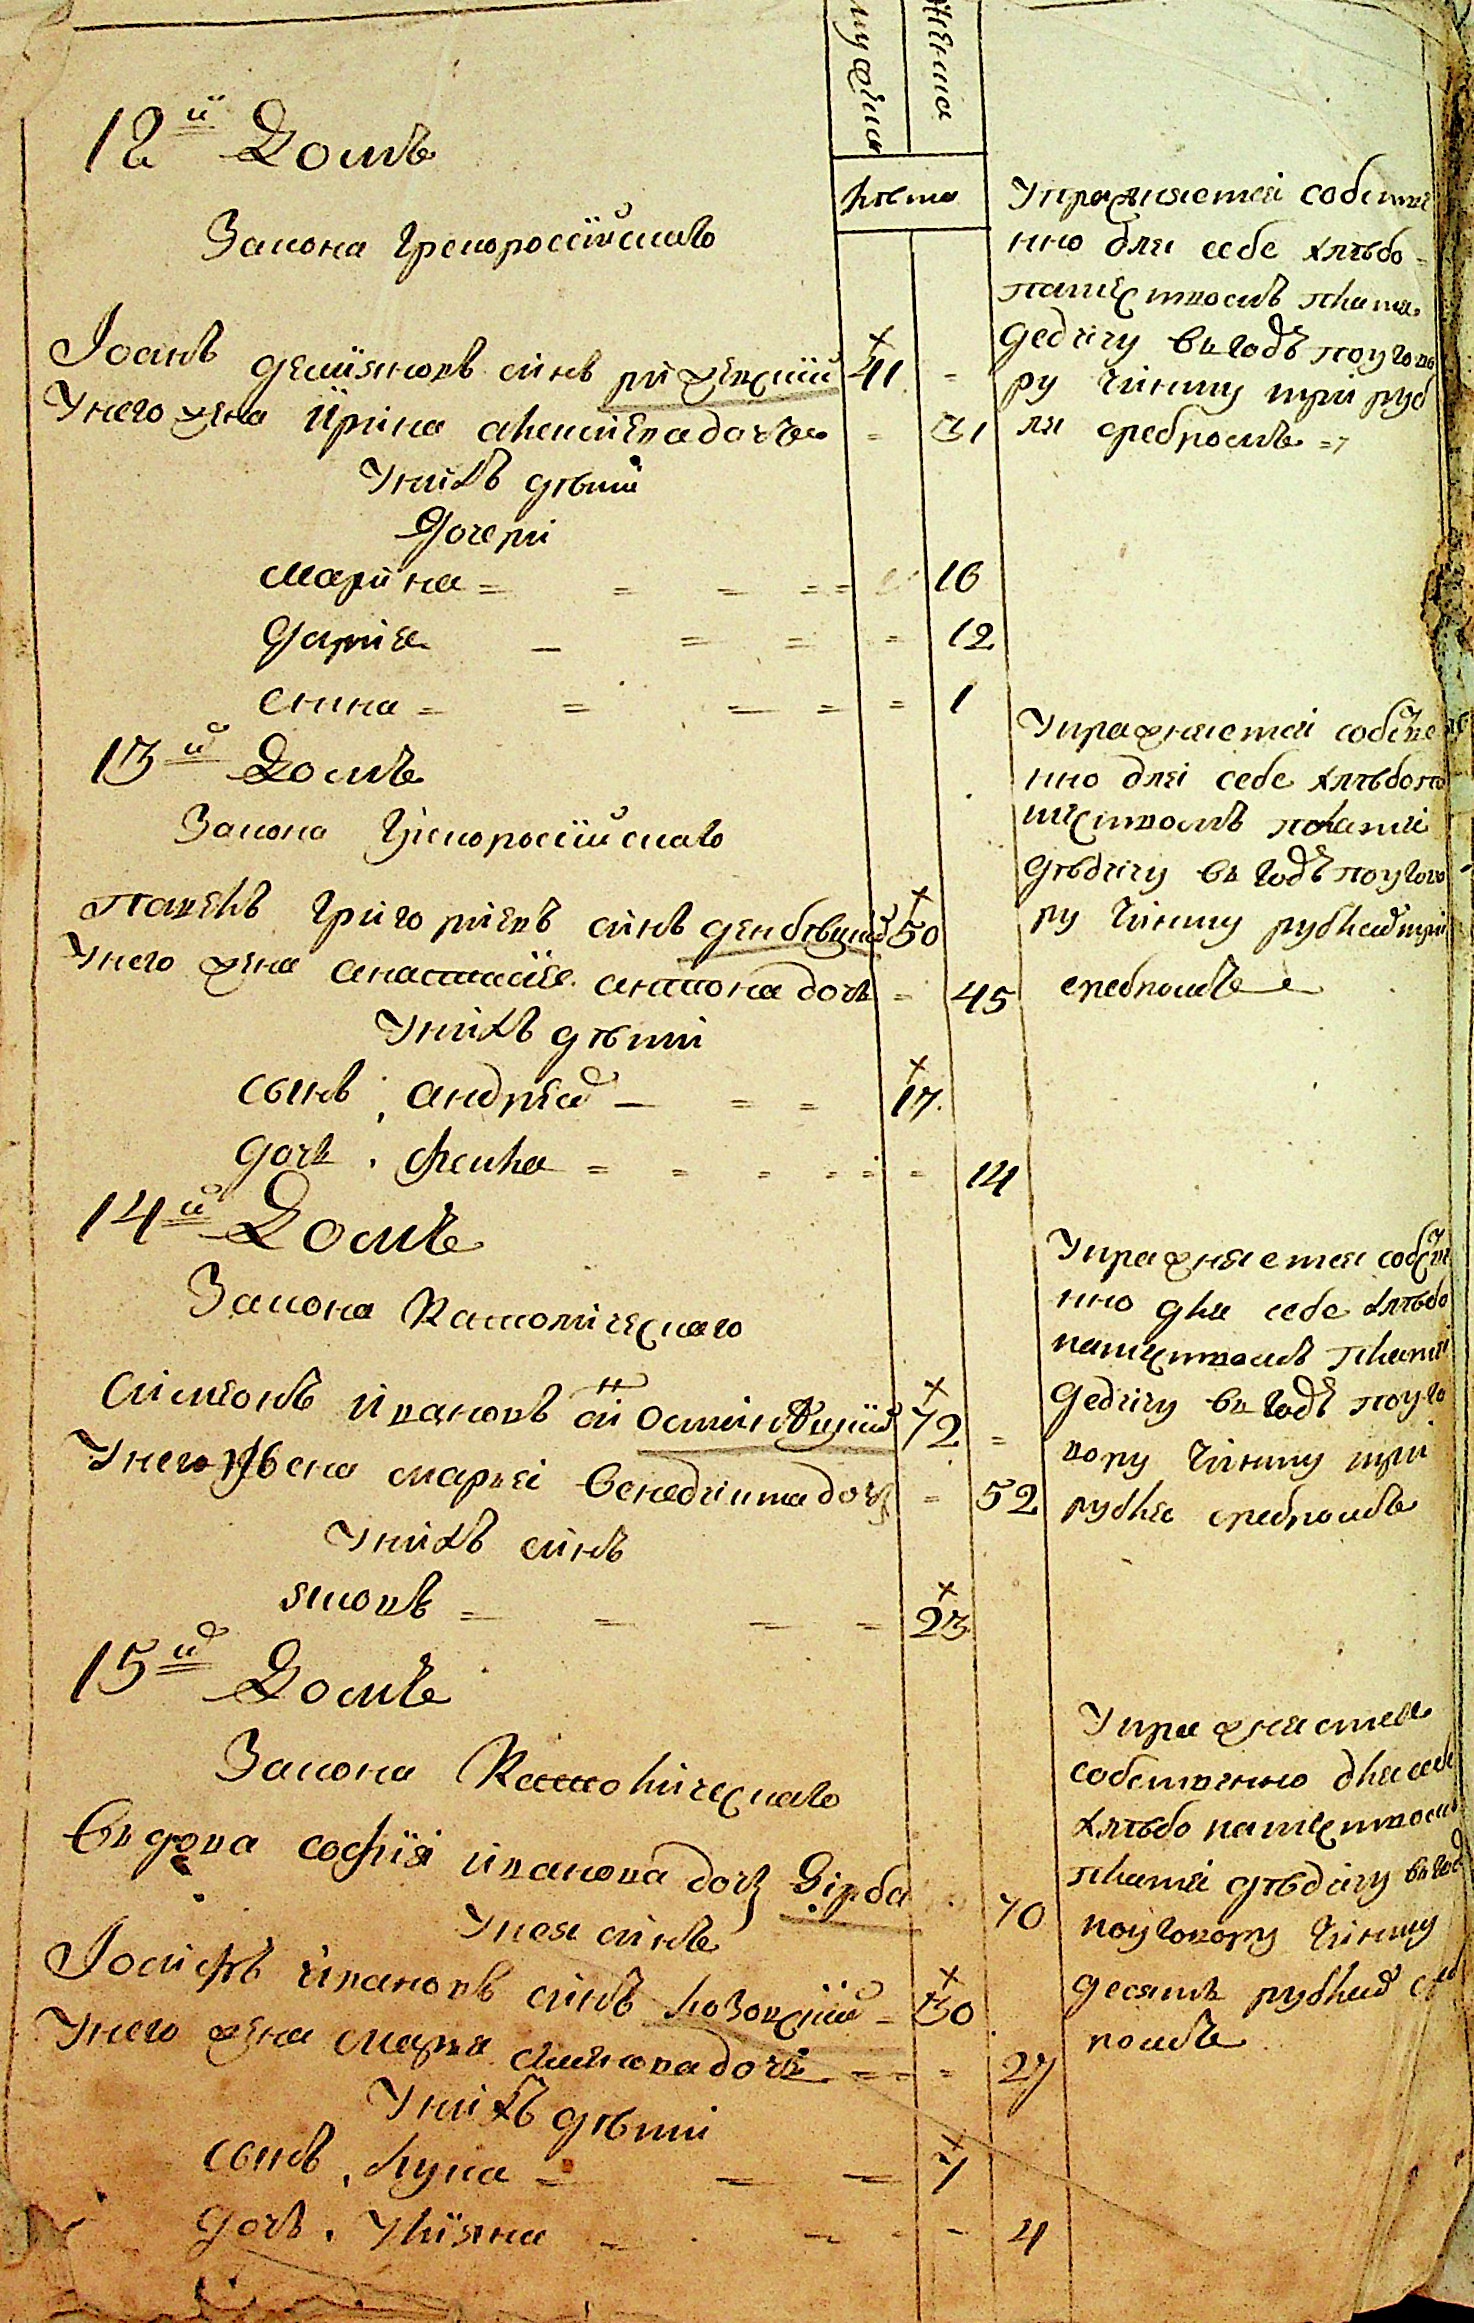 мужеска
женска
лѣта
12й Домъ
Закона Грекороссійскаго
Іоанъ Демияновъ синъ рижевский 41 =
У него жена Ирина Алексиева дочъ = 31
У нихъ дѣти
Дочери
Марина = = = = 16
Дария = = = = 12
Анна = = = = = 1
Упражняется собствен
нно для себе хлѣбо-
пашествомъ плати
Дедичу въ годъ по угово
ру чиншу три руб
ля сребромъ =
13й Домъ
Закона Грекороссійскаго
Павелъ Григориевъ синъ 50
У него жена Анастасие Антона дочъ = 45
У нихъ дѣти
Сынъ, Андрей = = = 17
Дочъ, = = = = = 14
Упражняется собстве
нно для себе хлѣбопа
шествомъ платя
Дѣдичу въ годъ по угово
ру чиншу рублей три
сребромъ
14й Домъ
Закона Католическаго
Симеонъ Ивановъ синъ 72 =
У него жена Марья Бенедикта дочъ = 52
У нихъ синъ
Яковъ = = = = 23
Упражняется собстве
нно для себе хлѣбо
пашествомъ плати
Дедичу въ годъ по уго
вору чиншу три
рубля сребромъ
15й Домъ
Закона Католическаго
Вдова Софія Иванова дочъ Вірба 70
У нея синъ
Іосифъ Ивановъ синъ Козовский = 30
У него жена Марья дочъ = = = 27
У нихъ дѣти
Сынъ, Лука = = = 7
Дочъ, Улияна = = = 4
Упражняется
собственно для себе
хлѣбопашествомъ
платя Дѣдичу въ годъ
по уговору чиншу
десять рублей среб
ромъ